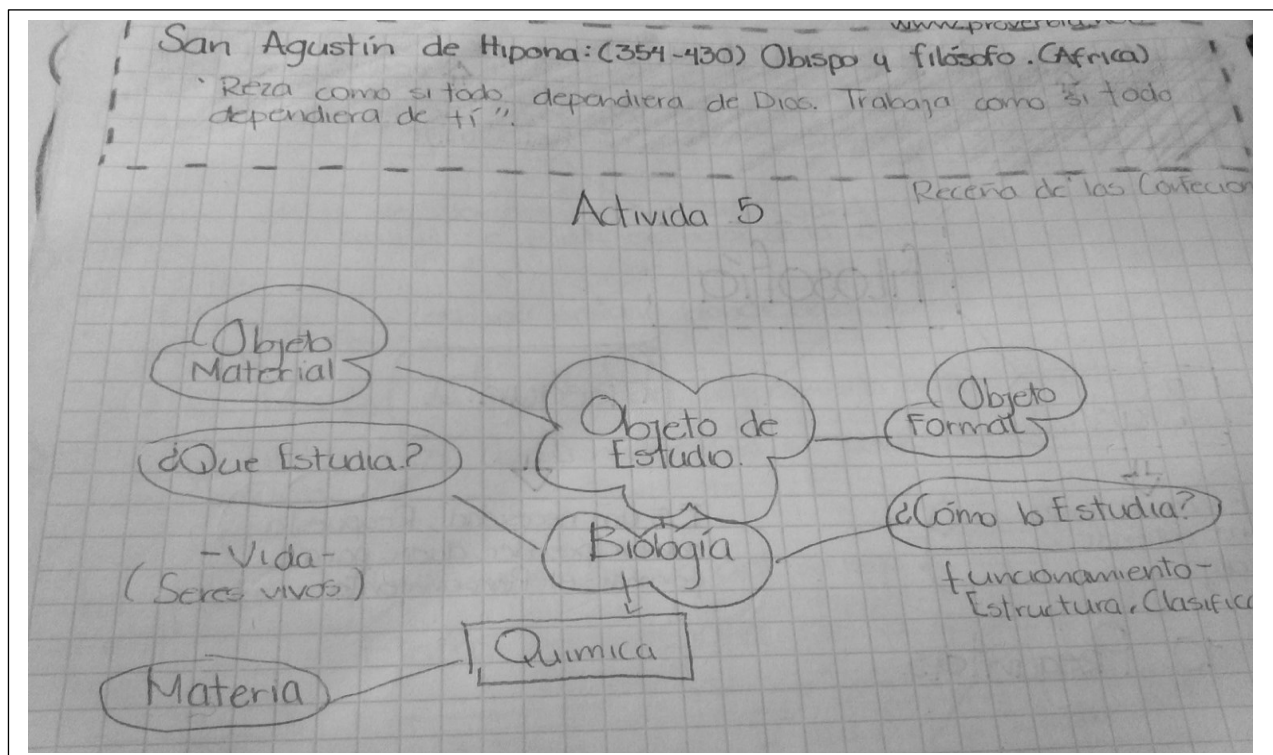 San Agustín de Hipona: (354-430) Obispo y filósofo. (Africa)
"Reza como si todo dependiera de Dios. Trabaja como si todo
dependiera de tí".
Receña de las Confecion
Activida 5
Objeto
Material
Objeto de
Estudio.
Objeto
Formal
¿Que Estudia?
¿Cómo lo Estudia?
Biología
-Vida-
(Seres vivos)
funcionamiento-
Estructura. Clasific
Quimica
Materia